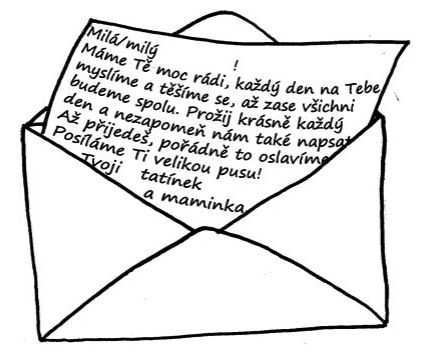 Milá/milý !
Máme Tě moc rádi, každý den na Tebe
myslíme a těšíme se, až zase všichni
budeme spolu. Prožij krásně každý
den a nezapomeň nám také napsat
Až přijedeš, pořádně to oslavíme
Posíláme Ti velikou pusu!
Tvoji tatínek
a maminka